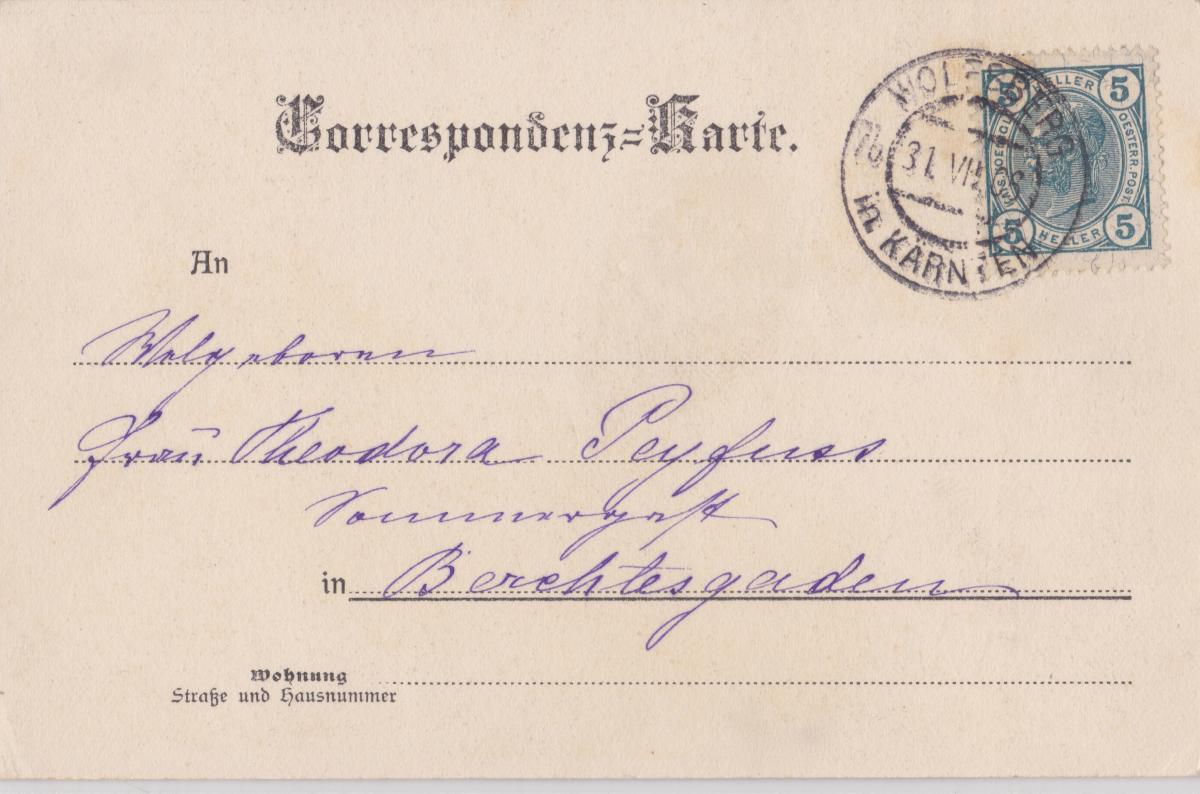 Correspondenz=Karte.
WOLFSBERG
in KÄRNTEN
31. VII.
5 HELLER 5
OESTERR. POST.
5 HELLER 5
An
Wolgeboren
Frau Theodora Peyfuss
Sommergast
in Berchtesgaden
Wohnung
Straße und Hausnummer